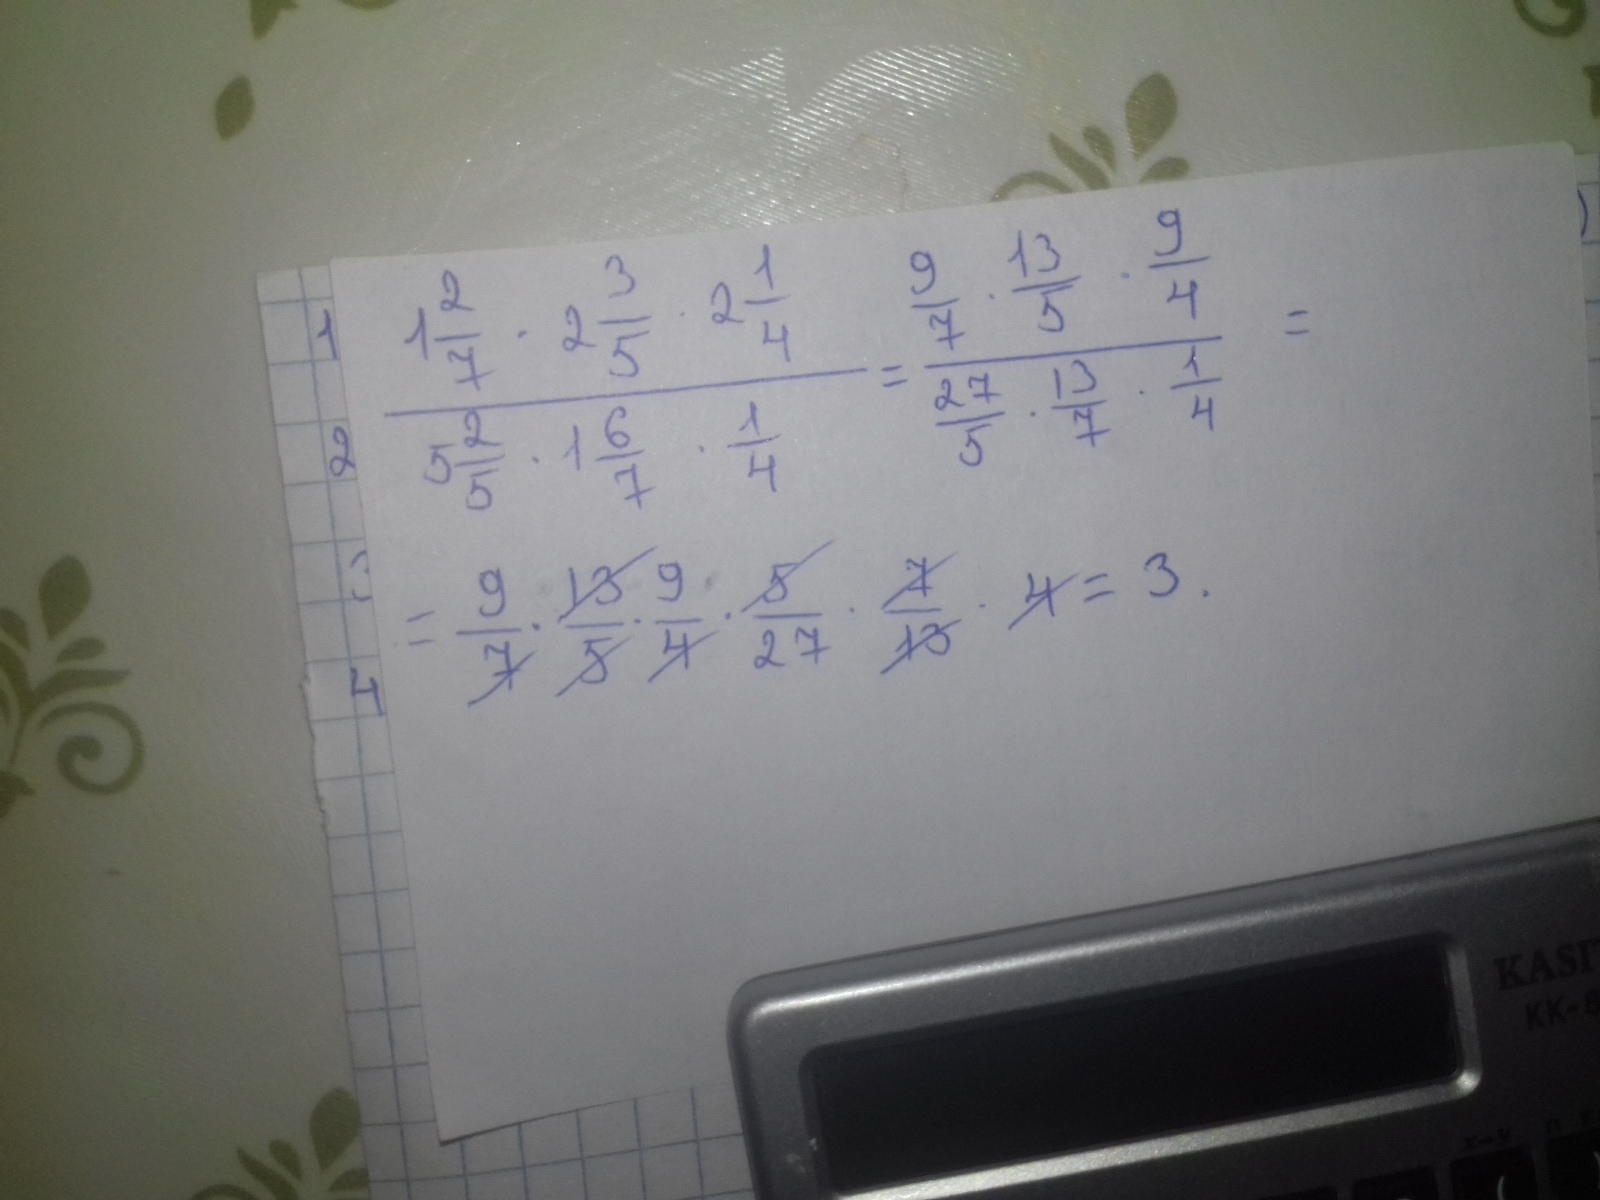 1 1 2/7 · 2 3/5 · 2 1/4 / 5 2/5 · 1 6/7 · 1/4 = 9/7 · 13/5 · 9/4 / 27/5 · 13/7 · 1/4 =
2
= 9/7 · 13/5 · 9/4 · 5/27 · 7/13 · 4 = 3.
4
KK-8